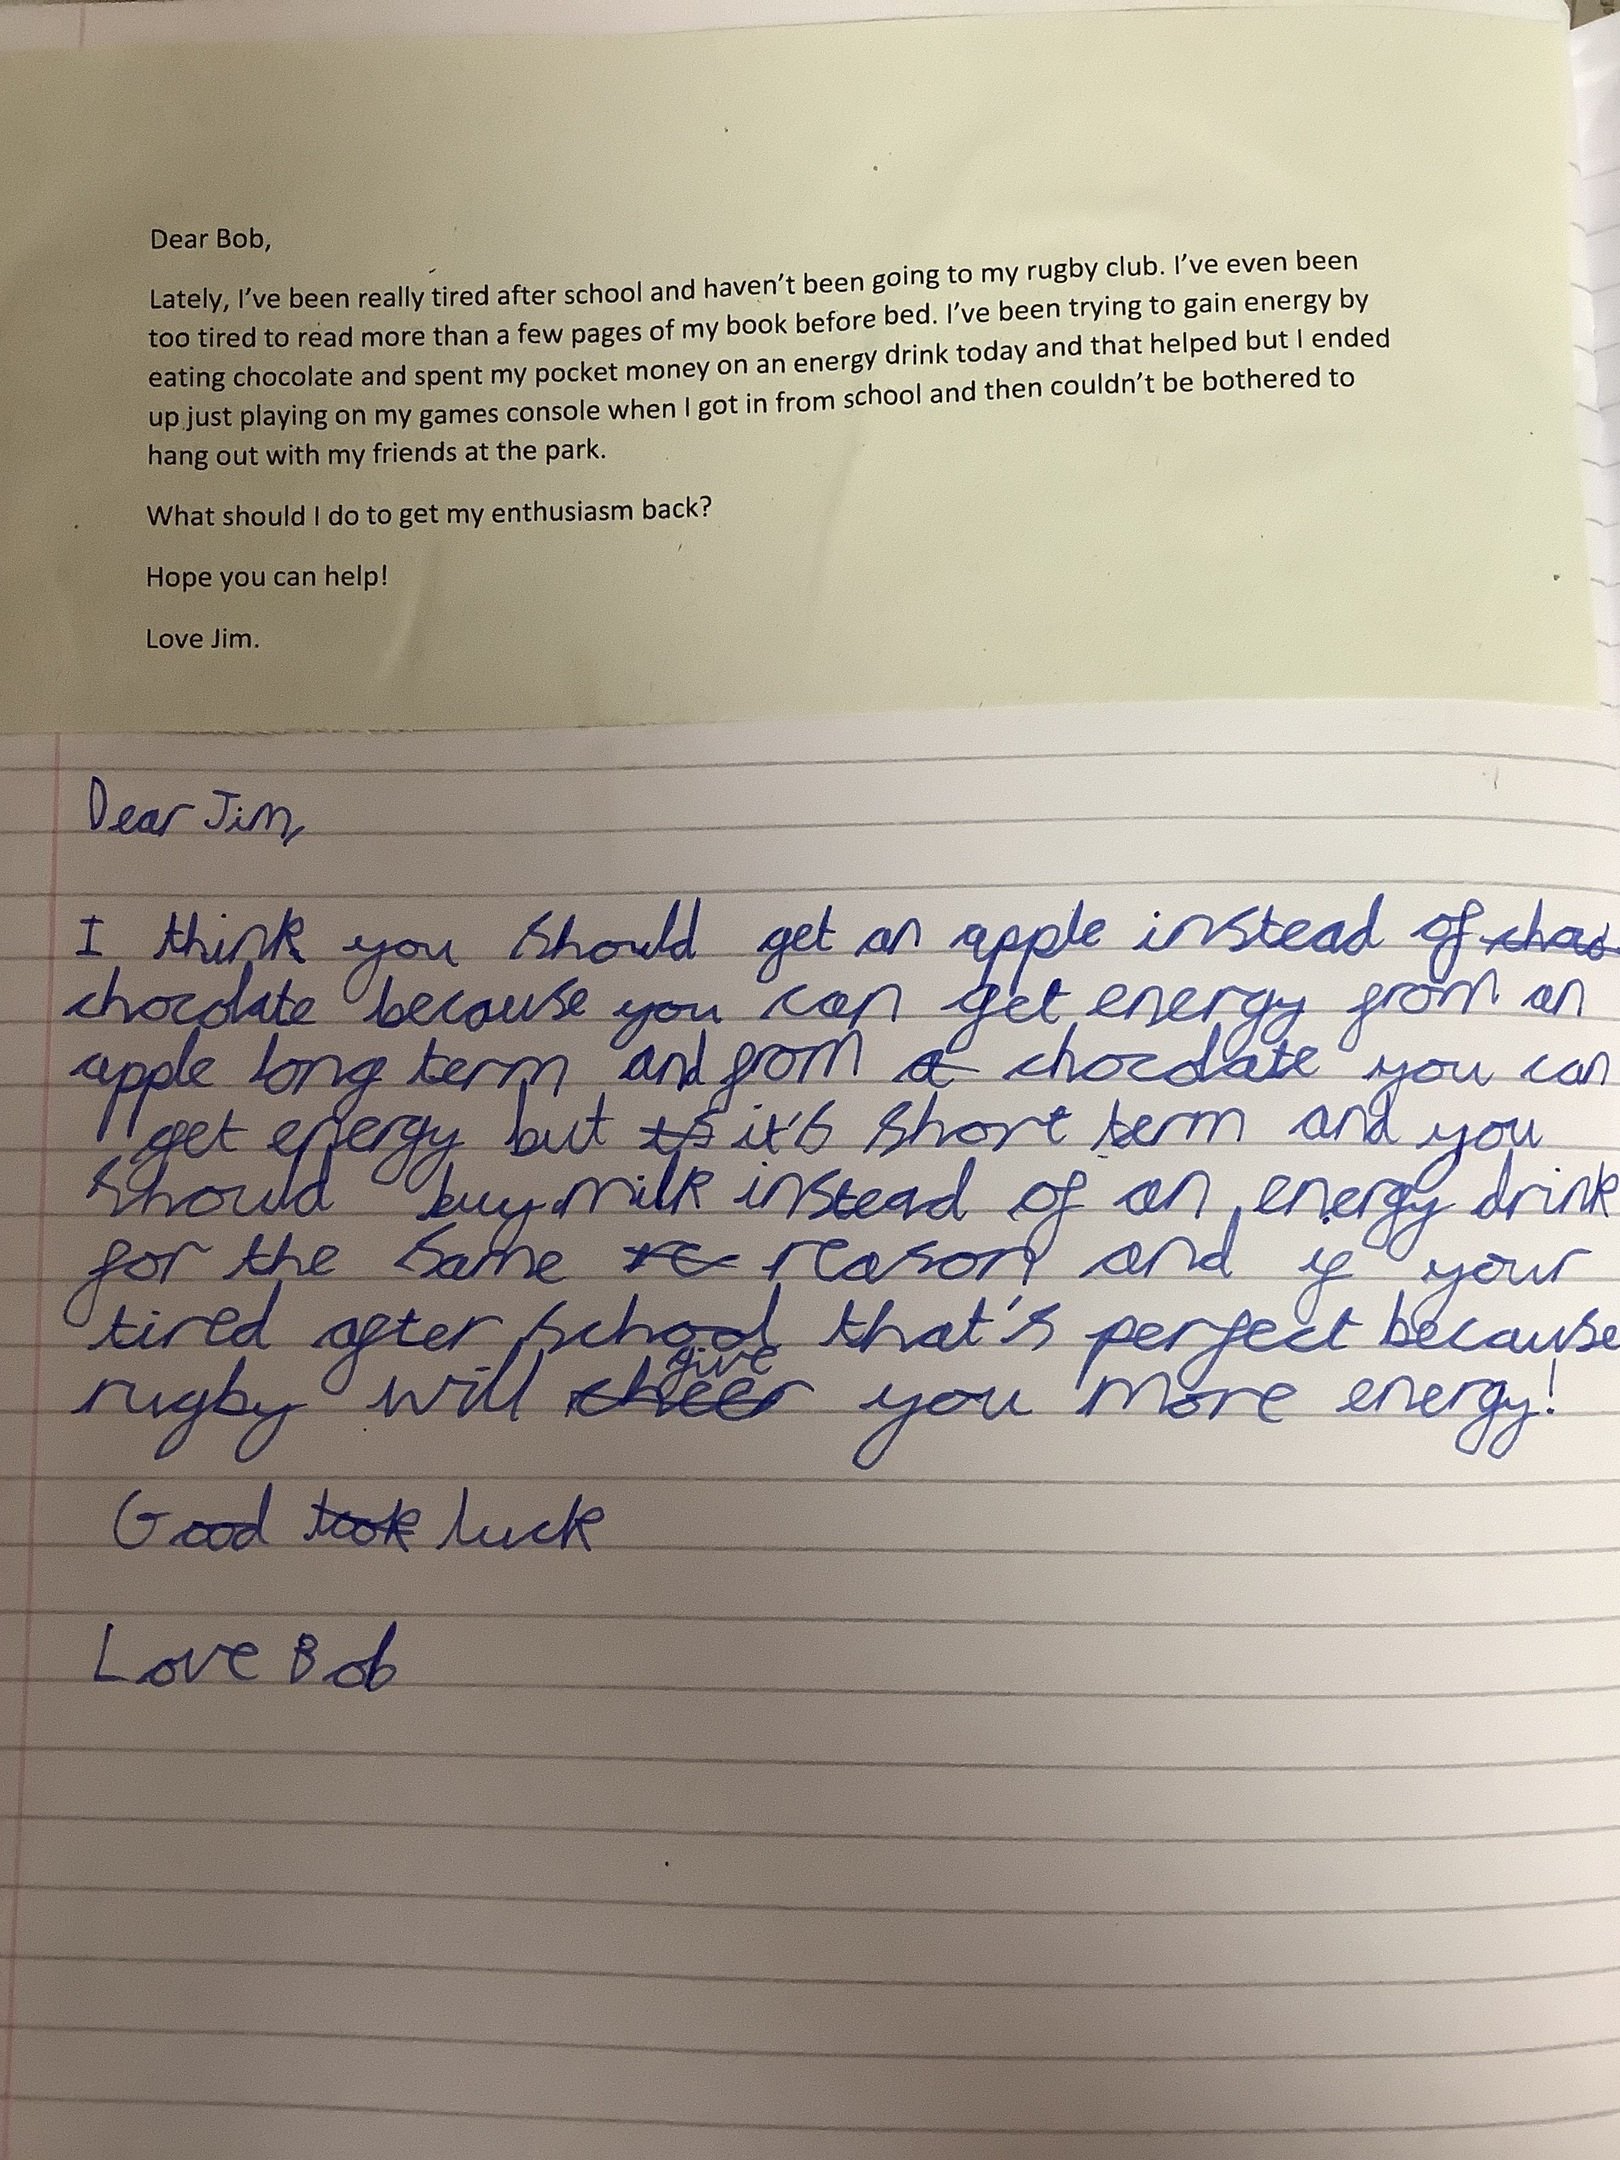 Dear Bob,
Lately, I've been really tired after school and haven't been going to my rugby club. I've even been
too tired to read more than a few pages of my book before bed. I've been trying to gain energy by
eating chocolate and spent my pocket money on an energy drink today and that helped but I ended
up just playing on my games console when I got in from school and then couldn't be bothered to
hang out with my friends at the park.
What should I do to get my enthusiasm back?
Hope you can help!
Love Jim.
Dear Jim,
I think you should get an apple instead of
chocolate because you can get energy from an
apple long term and from chocolate you can
get energy but it's short term and you
should buy milk instead of an energy drink
for the same reason and if your
tired after school that's perfect because
rugby will give you more energy!
Good luck
Love Bob